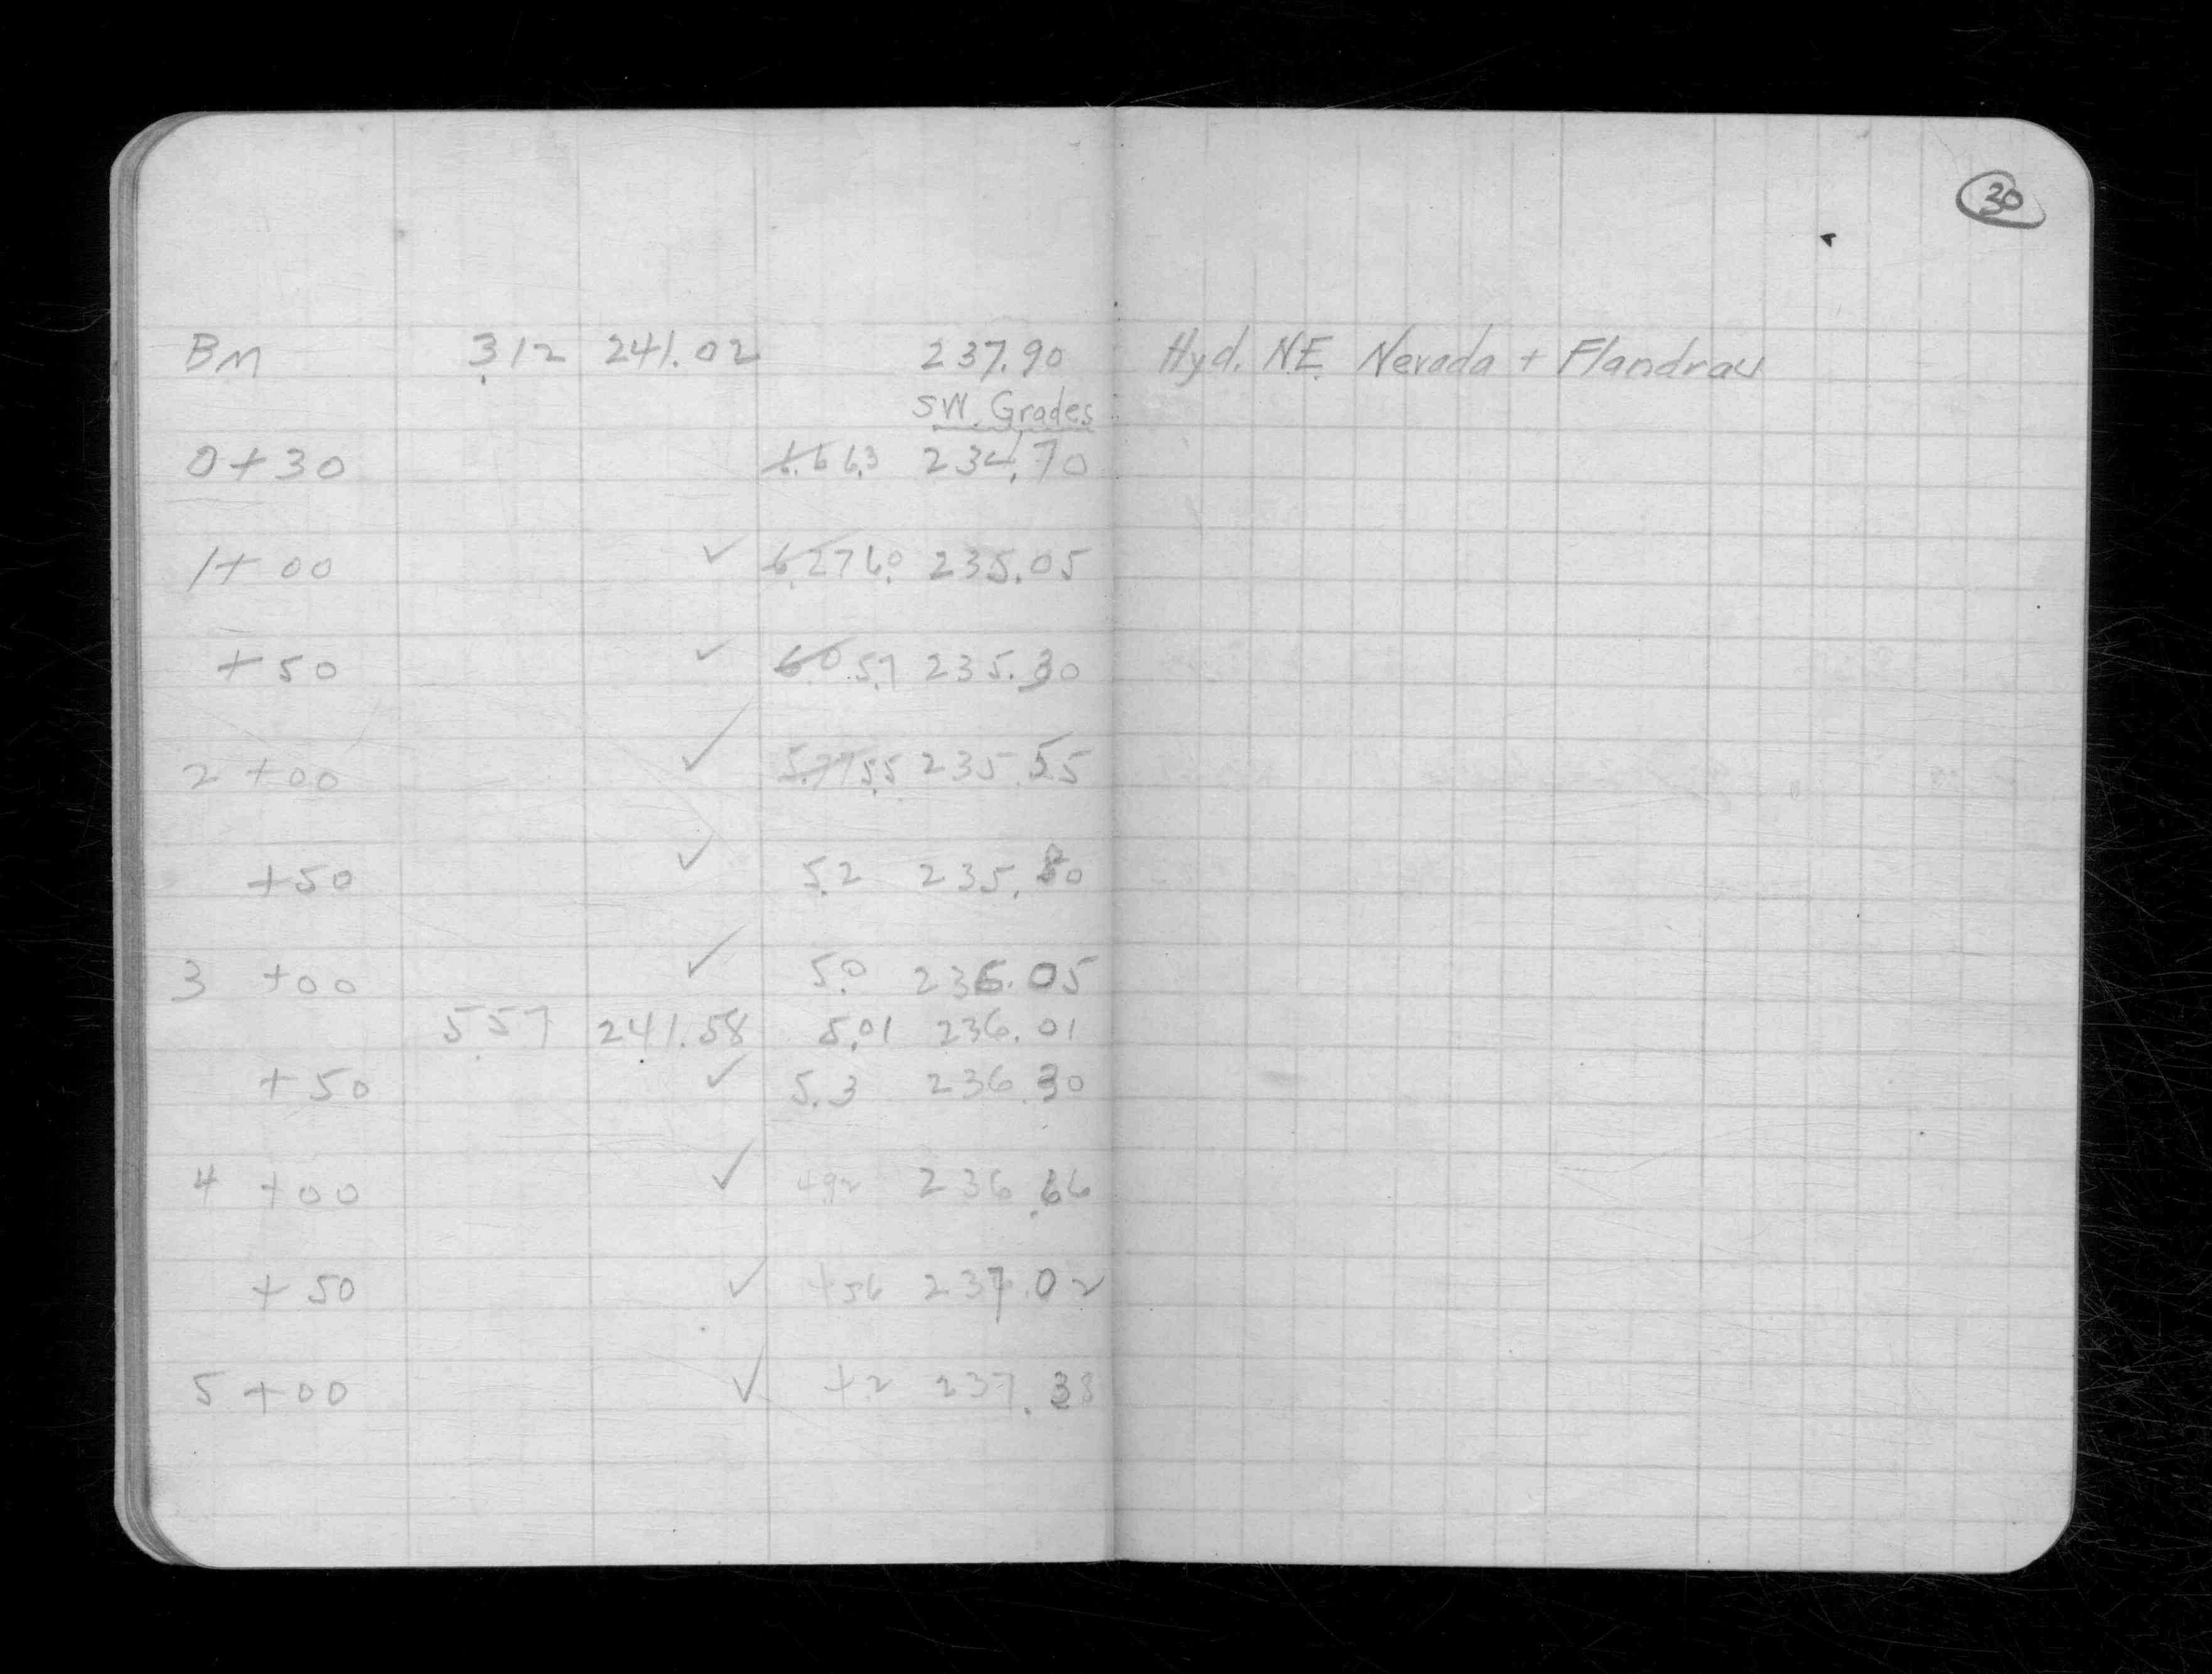 30
BM 3.12 241.02 237.90 Hyd. N.E. Nevada + Flandrau
SW. Grades
0+30 6.6 6.3 234.70
1+00 ✓ 6.27 6.0 235.05
+50 ✓ 6.0 5.7 235.30
2+00 ✓ 5.77 5.5 235.55
+50 ✓ 5.2 235.80
3+00 ✓ 5.0 236.05
5.57 241.58 5.01 236.01
+50 ✓ 5.3 236.30
4+00 ✓ 4.92 236.66
+50 ✓ 4.56 237.02
5+00 ✓ 4.2 237.38